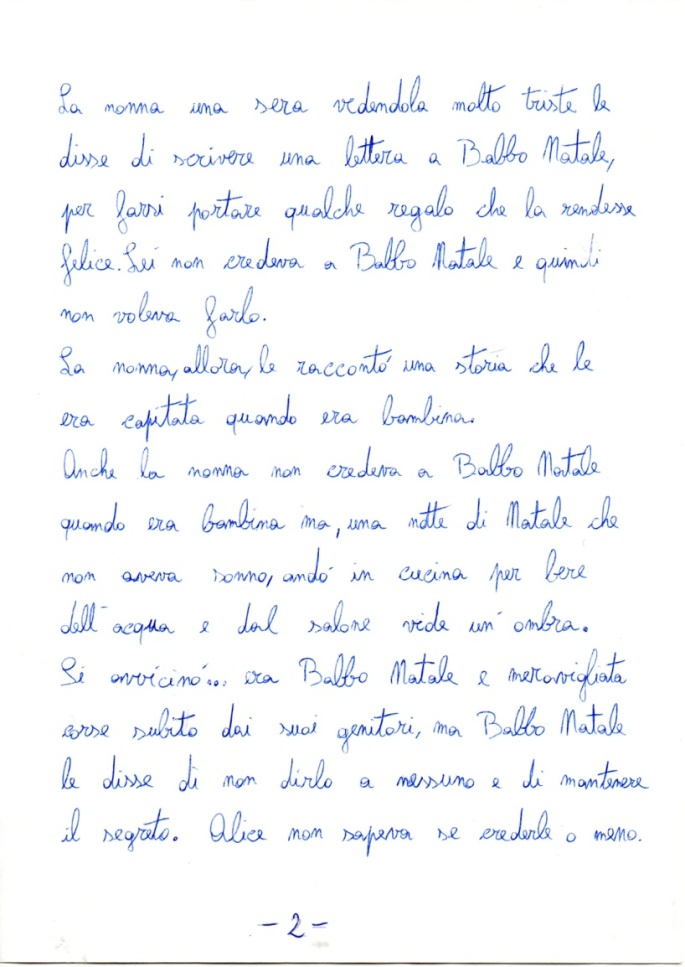 La nonna una sera vedendola molto triste le
disse di scrivere una lettera a Babbo Natale,
per farsi portare qualche regalo che la rendesse
felice. Lei non credeva a Babbo Natale e quindi
non voleva farlo.
La nonna, allora, le raccontò una storia che le
era capitata quando era bambina.
Anche la nonna non credeva a Babbo Natale
quando era bambina ma, una notte di Natale che
non aveva sonno, andò in cucina per bere
dell'acqua e dal salone vide un'ombra.
Si avvicinò... era Babbo Natale e meravigliata
corse subito dai suoi genitori, ma Babbo Natale
le disse di non dirlo a nessuno e di mantenere
il segreto. Alice non sapeva se crederle o meno.
- 2 -